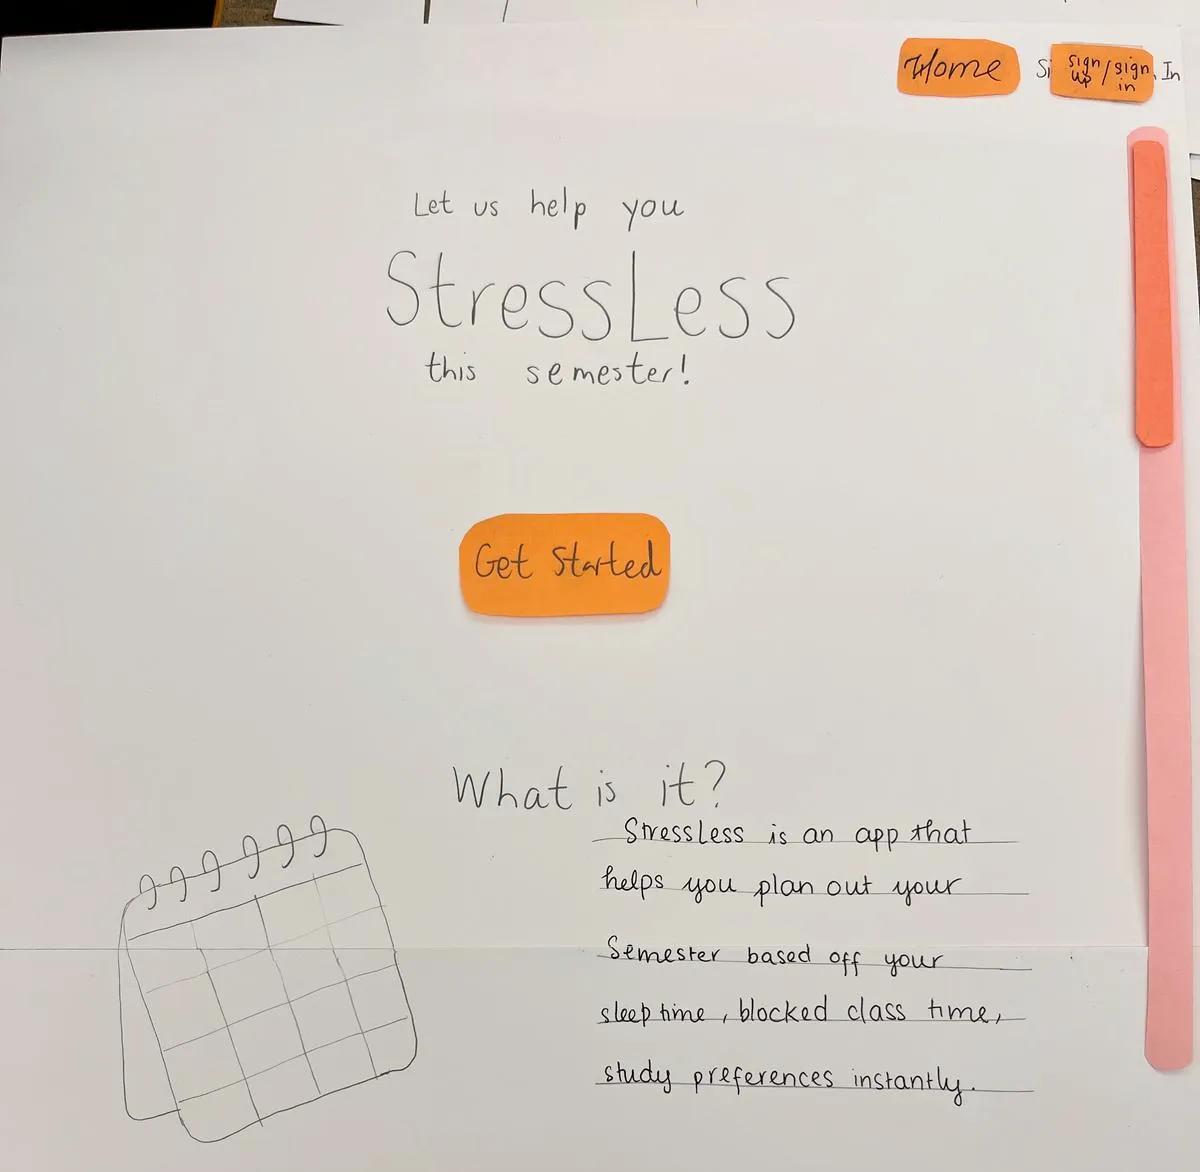 Home
Si
sign up/sign in
In
Let us help you
StressLess
this semester!
Get Started
What is it?
StressLess is an app that
helps you plan out your
Semester based off your
sleep time, blocked class time,
study preferences instantly.